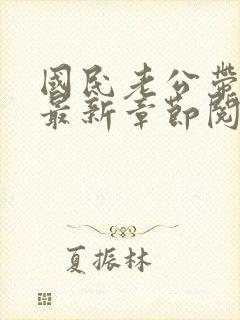 國民老公帶
最新章節閱
夏振林